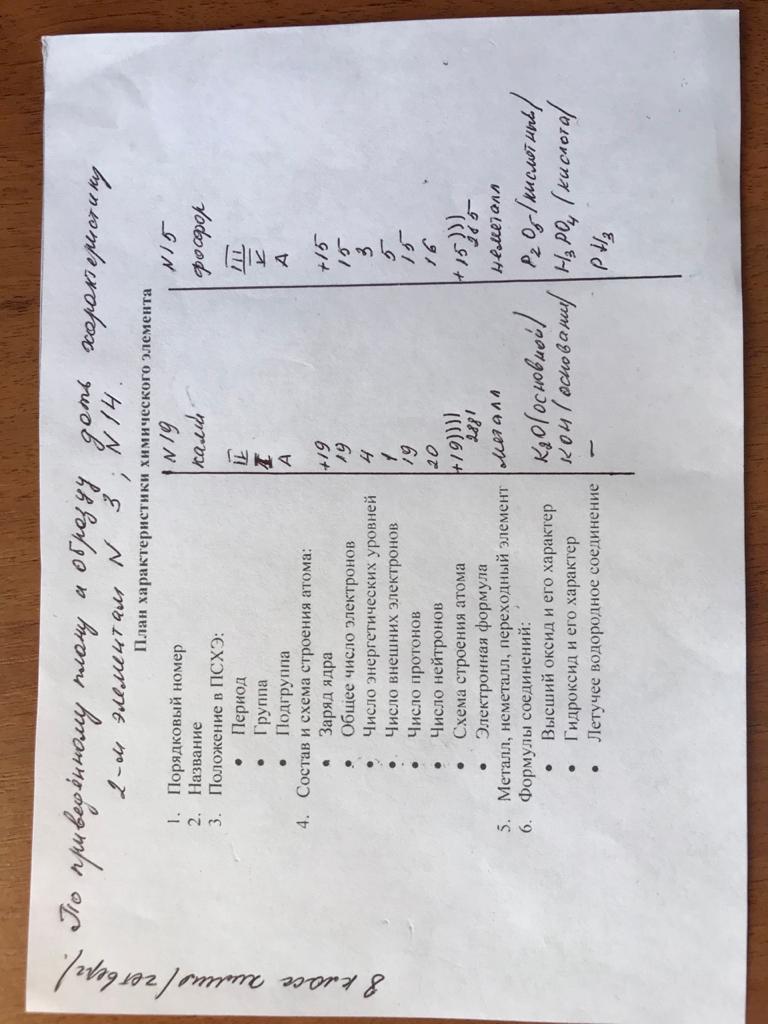 8 класс химия /четверг/.
По приведённому плану и образцу дать характеристику
2-м элементам N 3 ; N 14.
План характеристики химического элемента
1. Порядковый номер N19 N15
2. Название калий фосфор
3. Положение в ПСХЭ:
• Период IV III
• Группа I V
• Подгруппа A A
4. Состав и схема строения атома:
• Заряд ядра +19 +15
• Общее число электронов 19 15
• Число энергетических уровней 4 3
• Число внешних электронов 1 5
• Число протонов 19 15
• Число нейтронов 20 16
• Схема строения атома +19)))) +15)))
• Электронная формула 2881 285
5. Металл, неметалл, переходный элемент металл неметалл
6. Формулы соединений:
• Высший оксид и его характер K2O /основной/ P2O5 /кислотный/
• Гидроксид и его характер KOH /основание/ H3PO4 /кислота/
• Летучее водородное соединение — PH3